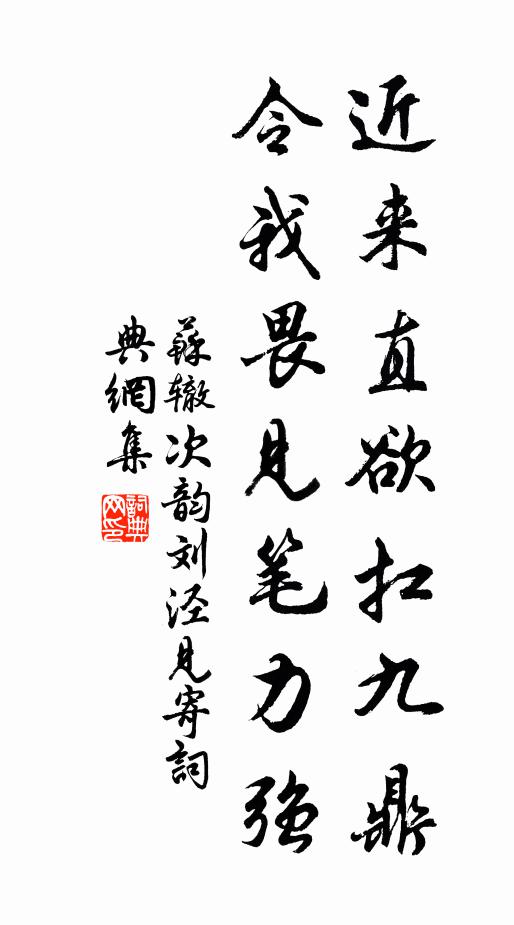 近来直欲扛九鼎
令我畏见笔力强
蘇辙次韵刘泾见寄詞
典網集
詞典
网印